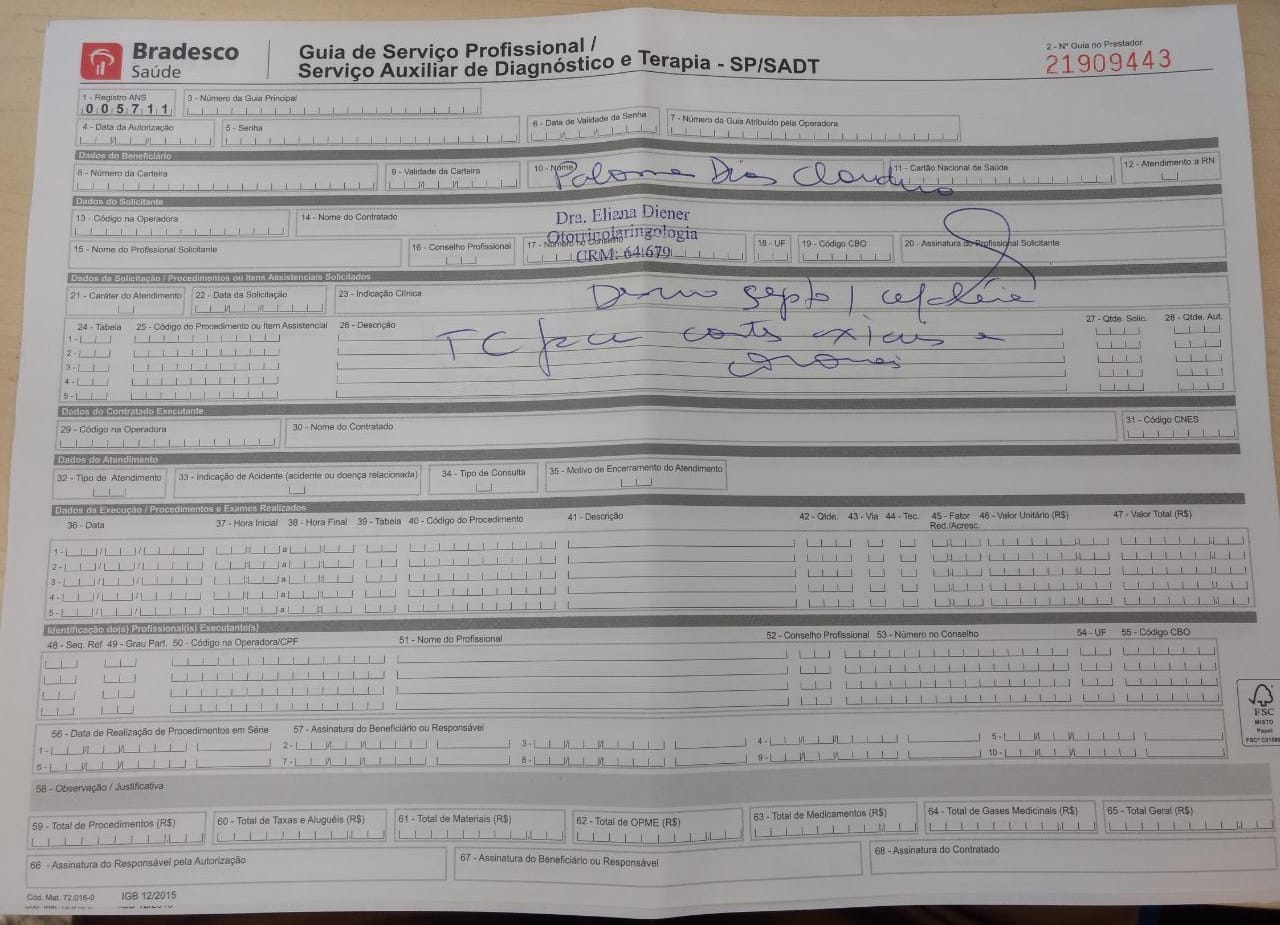 Bradesco
Saúde
Guia de Serviço Profissional /
Serviço Auxiliar de Diagnóstico e Terapia - SP/SADT
2 - Nº Guia no Prestador
21909443
1 - Registro ANS
005711
3 - Número da Guia Principal
4 - Data da Autorização
5 - Senha
6 - Data de Validade da Senha
7 - Número da Guia Atribuído pela Operadora
Dados do Beneficiário
8 - Número da Carteira
9 - Validade da Carteira
10 - Nome
Paloma Dias Claudino
11 - Cartão Nacional de Saúde
12 - Atendimento a RN
Dados do Solicitante
13 - Código na Operadora
14 - Nome do Contratado
Dra. Eliana Diener
Otorrinolaringologia
CRM: 64.679
15 - Nome do Profissional Solicitante
16 - Conselho Profissional
17 - Número no Conselho
18 - UF
19 - Código CBO
20 - Assinatura do Profissional Solicitante
Dados da Solicitação / Procedimentos ou Itens Assistenciais Solicitados
21 - Caráter do Atendimento
22 - Data da Solicitação
23 - Indicação Clínica
septo / cefaléia
24 - Tabela
25 - Código do Procedimento ou Item Assistencial
26 - Descrição
27 - Qtde. Solic.
28 - Qtde. Aut.
TC face corts axiais e
1 -
2 -
3 -
4 -
5 -
Dados do Contratado Executante
29 - Código na Operadora
30 - Nome do Contratado
31 - Código CNES
Dados do Atendimento
32 - Tipo de Atendimento
33 - Indicação de Acidente (acidente ou doença relacionada)
34 - Tipo de Consulta
35 - Motivo de Encerramento do Atendimento
Dados da Execução / Procedimentos e Exames Realizados
36 - Data
37 - Hora Inicial
38 - Hora Final
39 - Tabela
40 - Código do Procedimento
41 - Descrição
42 - Qtde.
43 - Via
44 - Tec.
45 - Fator Red./Acresc.
46 - Valor Unitário (R$)
47 - Valor Total (R$)
1 - / / a
2 - / / a
3 - / / a
4 - / / a
5 - / / a
Identificação do(s) Profissional(is) Executante(s)
48 - Seq. Ref
49 - Grau Part.
50 - Código na Operadora/CPF
51 - Nome do Profissional
52 - Conselho Profissional
53 - Número no Conselho
54 - UF
55 - Código CBO
56 - Data de Realização de Procedimentos em Série
57 - Assinatura do Beneficiário ou Responsável
1 -
2 -
3 -
4 -
5 -
6 -
7 -
8 -
9 -
10 -
58 - Observação / Justificativa
59 - Total de Procedimentos (R$)
60 - Total de Taxas e Aluguéis (R$)
61 - Total de Materiais (R$)
62 - Total de OPME (R$)
63 - Total de Medicamentos (R$)
64 - Total de Gases Medicinais (R$)
65 - Total Geral (R$)
66 - Assinatura do Responsável pela Autorização
67 - Assinatura do Beneficiário ou Responsável
68 - Assinatura do Contratado
Cód. Mat. 72.016-0
IGB 12/2015
FSC
MISTO
Papel